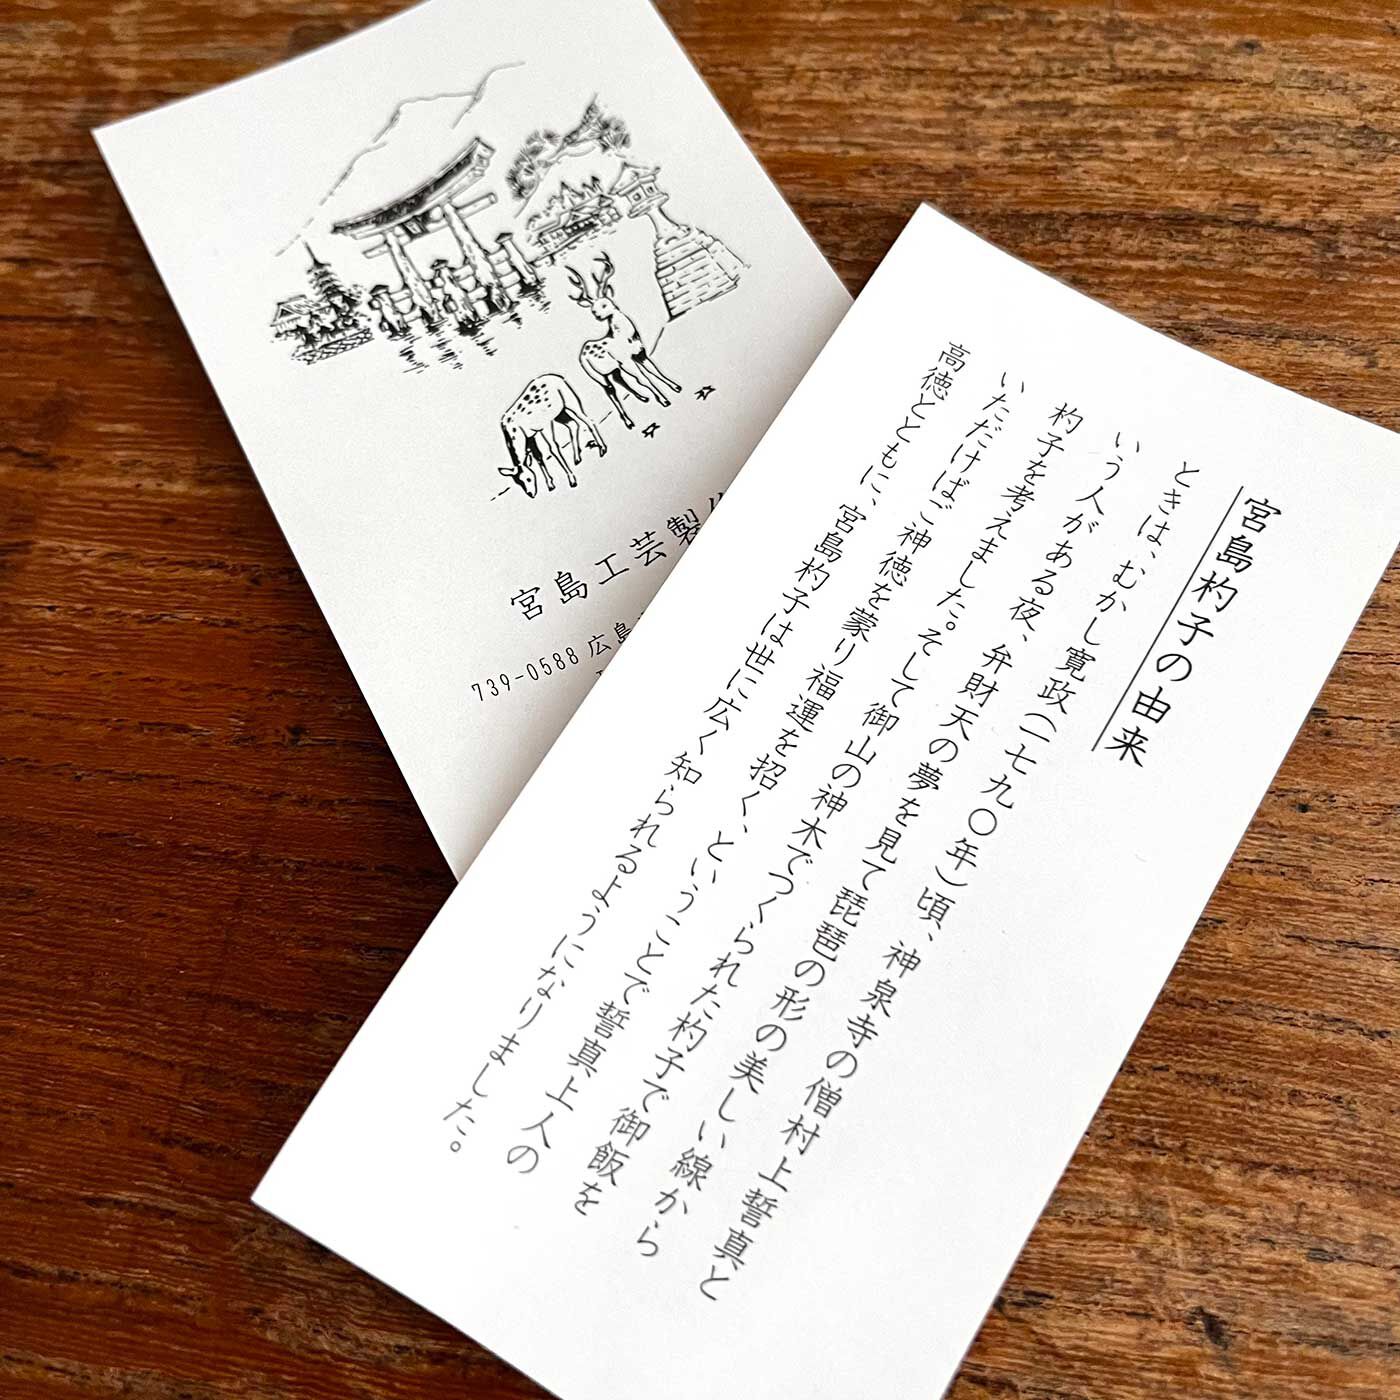 宮島杓子の由来
ときは、むかし寛政(一七九〇年)頃、神泉寺の僧村上誓真と
いう人がある夜、弁財天の夢を見て琵琶の形の美しい線から
杓子を考えました。そして御山の神木でつくられた杓子で御飯を
いただけばご神徳を蒙り福運を招く、ということで誓真上人の
高徳とともに、宮島杓子は世に広く知られるようになりました。
宮島工芸製
739-0588 広島